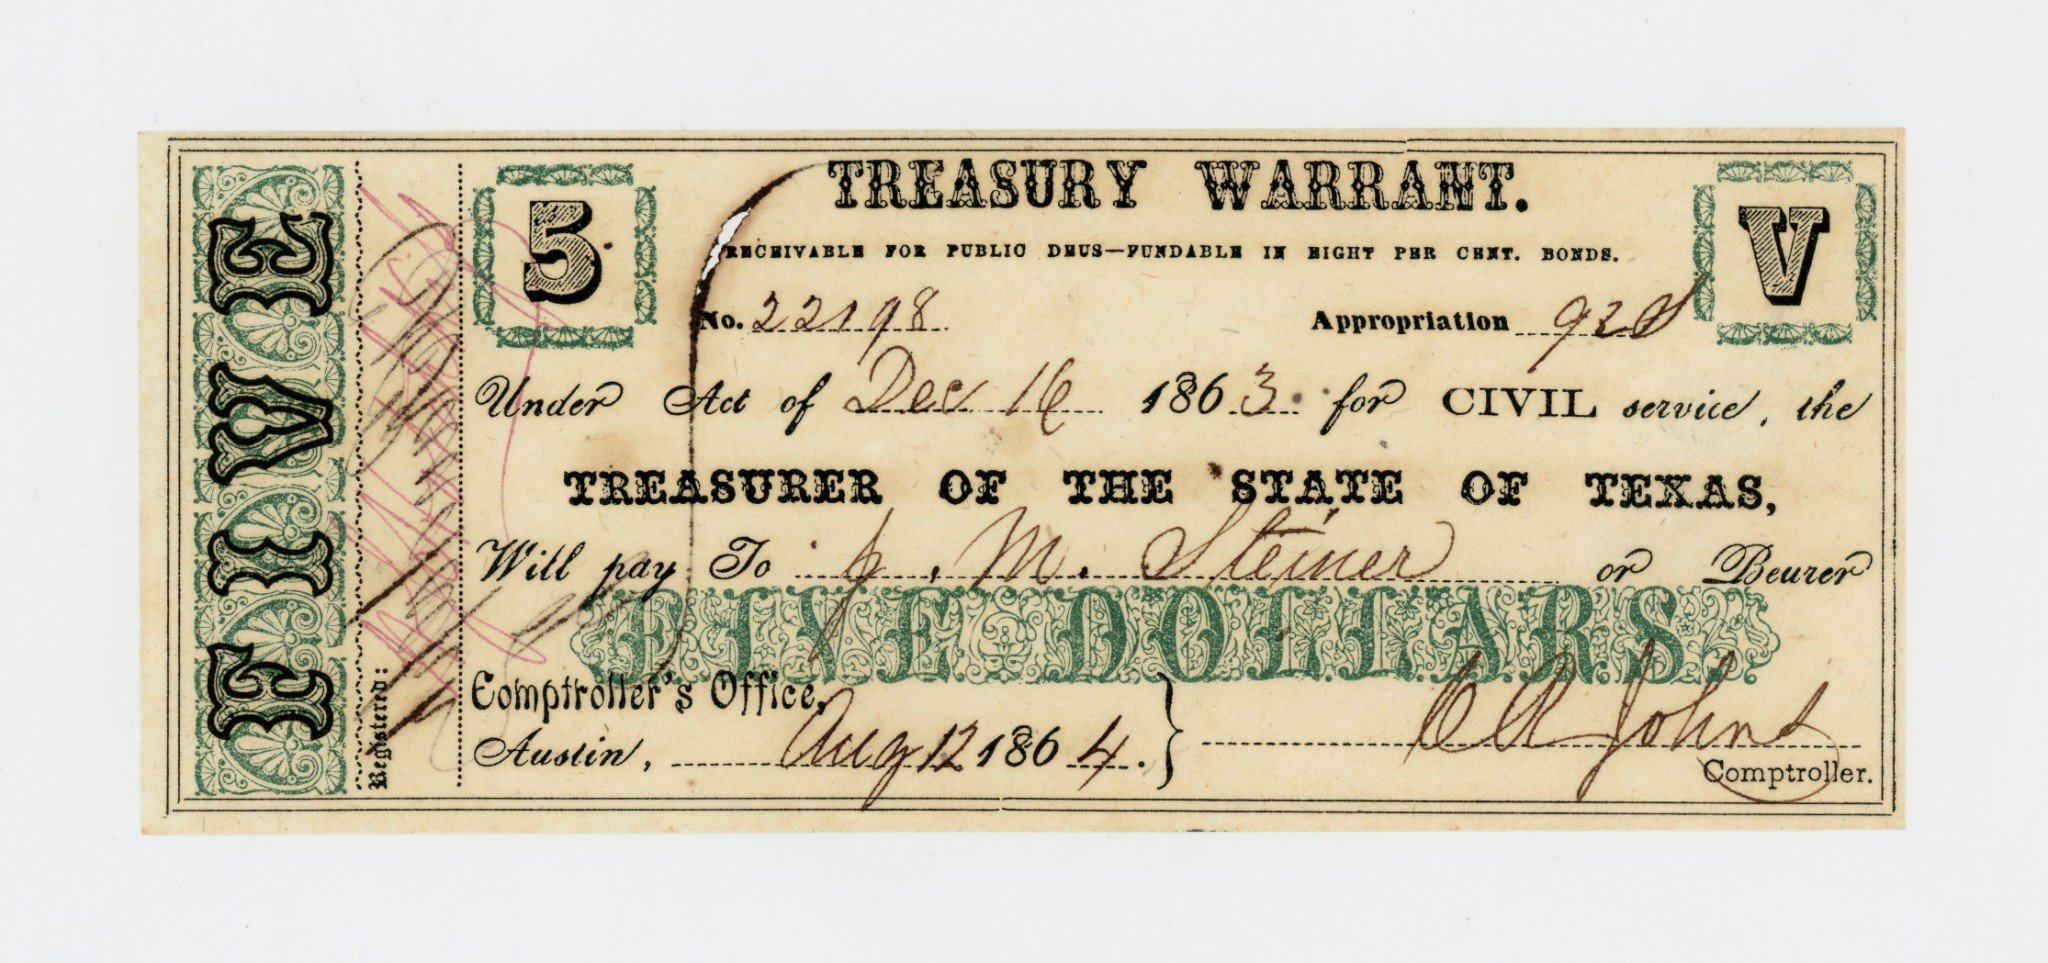 FIVE
Registered:
5
TREASURY WARRANT.
V
RECEIVABLE FOR PUBLIC DEUS—FUNDABLE IN EIGHT PER CENT. BONDS.
No. 22198 Appropriation 92
Under Act of Dec 16 1863. for CIVIL service, the
TREASURER OF THE STATE OF TEXAS,
Will pay To J. M. Steiner or Bearer
FIVE DOLLARS
Comptroller's Office,
Austin, Aug 12 1864.
C R Johns
Comptroller.